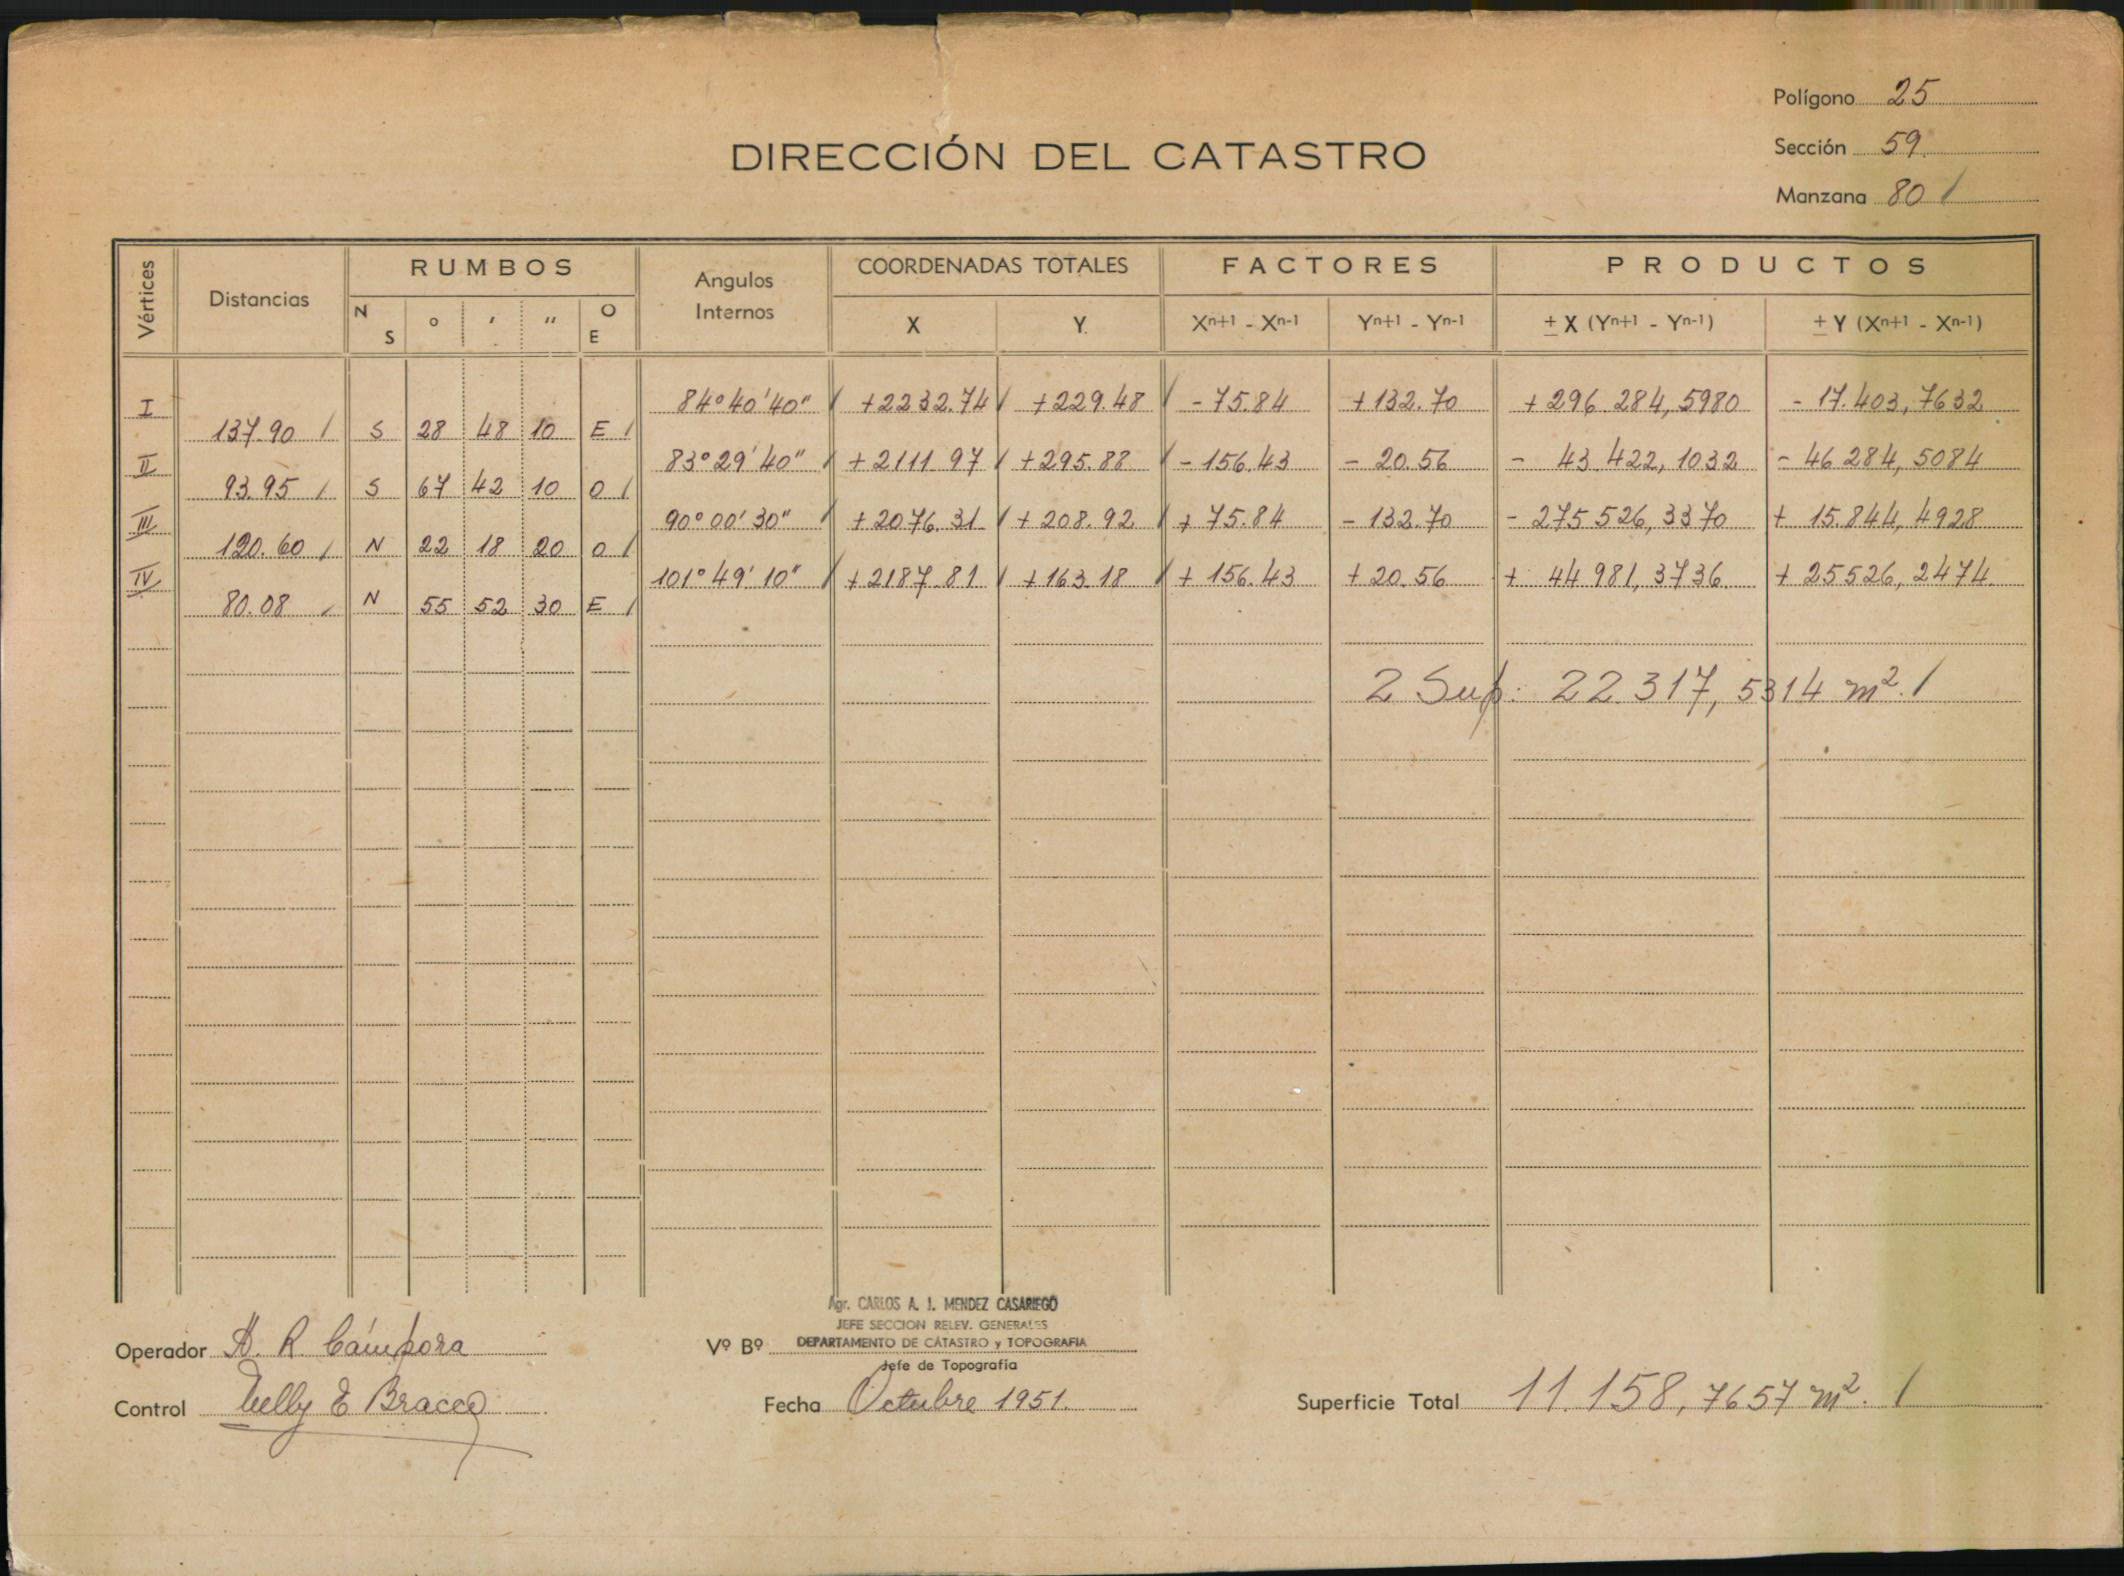 Polígono 25
DIRECCIÓN DEL CATASTRO
Sección 59.
Manzana 80 /
Vértices Distancias RUMBOS Angulos Internos COORDENADAS TOTALES FACTORES PRODUCTOS
N S ° ' " O E X Y Xn+1 - Xn-1 Yn+1 - Yn-1 ± X (Yn+1 - Yn-1) ± Y (Xn+1 - Xn-1)
I 84°40'40" / +2232.74 / +229.48 / -75.84 +132.70 +296.284,5980 -17.403,7632
137.90 / S 28 48 10 E /
II 83°29'40" / +2111.97 / +295.88 / -156.43 -20.56 -43.422,1032 -46.284,5084
93.95 / S 67 42 10 O /
III 90°00'30" / +2076.31 / +208.92 / +75.84 -132.70 -275.526,3370 +15.844,4928
120.60 / N 22 18 20 O /
IV 101°49'10" / +2187.81 / +163.18 / +156.43 +20.56 +44.981,3736 +25526,2474
80.08 / N 55 52 30 E /
2 Sup: 22.317,5314 m². /
Agr. CARLOS A. J. MENDEZ CASARIEGO
JEFE SECCION RELEV. GENERALES
Operador A. R. Cámpora Vº Bº DEPARTAMENTO DE CATASTRO y TOPOGRAFIA
Jefe de Topografía
Control Nelly E Bracco Fecha Octubre 1951. Superficie Total 11.158,7657 m². /